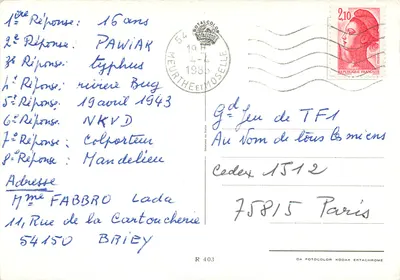 1ère Réponse : 16 ans
2è Réponse : PAWIAK
3è Réponse : typhus
4è Réponse : rivière Bug
5è Réponse : 19 avril 1943
6è Réponse : NKVD
7è Réponse : Colporteur
8è Réponse : Mandelieu
Adresse
Mme FABBRO Lada
11, Rue de la Cartoucherie
54150 BRIEY
54
MEURTHE ET MOSELLE
2,10
Gd Jeu de TF1
Au Nom de tous les miens
Cedex 1512
75815 Paris
R 403